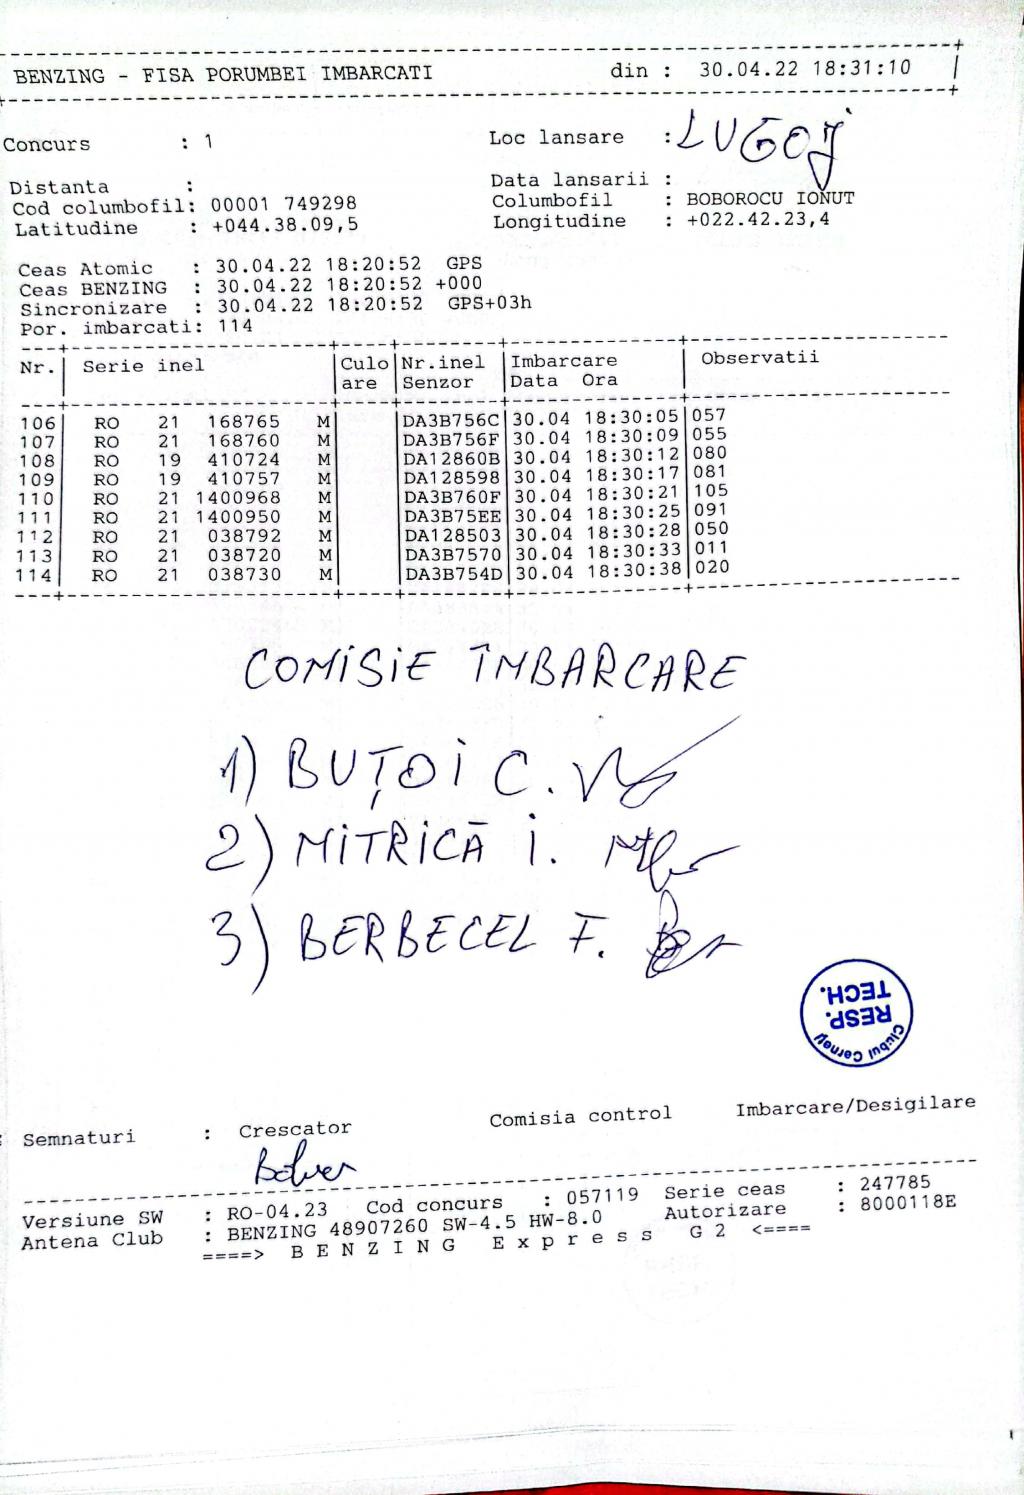 BENZING - FISA PORUMBEI IMBARCATI din : 30.04.22 18:31:10
Concurs : 1 Loc lansare : LUGOJ
Distanta : Data lansarii :
Cod columbofil: 00001 749298 Columbofil : BOBOROCU IONUT
Latitudine : +044.38.09,5 Longitudine : +022.42.23,4
Ceas Atomic : 30.04.22 18:20:52 GPS
Ceas BENZING : 30.04.22 18:20:52 +000
Sincronizare : 30.04.22 18:20:52 GPS+03h
Por. imbarcati: 114
Nr. Serie inel Culo Nr.inel Imbarcare Observatii
are Senzor Data Ora
106 RO 21 168765 M DA3B756C 30.04 18:30:05 057
107 RO 21 168760 M DA3B756F 30.04 18:30:09 055
108 RO 19 410724 M DA12860B 30.04 18:30:12 080
109 RO 19 410757 M DA128598 30.04 18:30:17 081
110 RO 21 1400968 M DA3B760F 30.04 18:30:21 105
111 RO 21 1400950 M DA3B75EE 30.04 18:30:25 091
112 RO 21 038792 M DA128503 30.04 18:30:28 050
113 RO 21 038720 M DA3B7570 30.04 18:30:33 011
114 RO 21 038730 M DA3B754D 30.04 18:30:38 020
COMISIE ÎMBARCARE
1) BUȚOI C.
2) MITRICĂ I.
3) BERBECEL F.
Clubul Cerneți
RESP.
TECH.
Semnaturi : Crescator Comisia control Imbarcare/Desigilare
Versiune SW : RO-04.23 Cod concurs : 057119 Serie ceas : 247785
Antena Club : BENZING 48907260 SW-4.5 HW-8.0 Autorizare : 8000118E
====> B E N Z I N G E x p r e s s G 2 <====